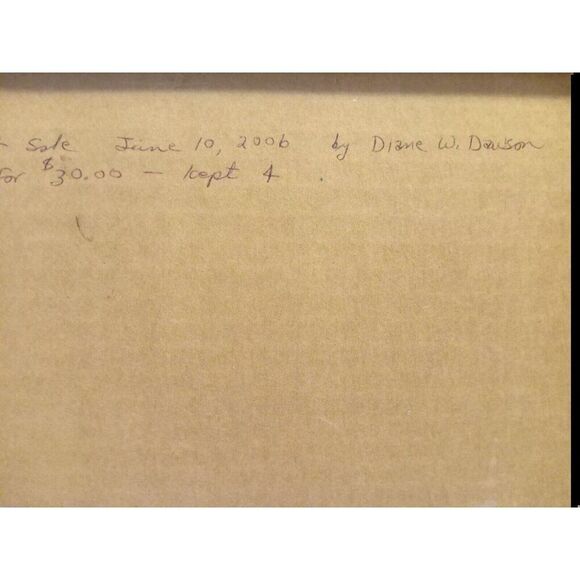 - Sale June 10, 2006 by Diane W. Dawson
for $30.00 — kept 4